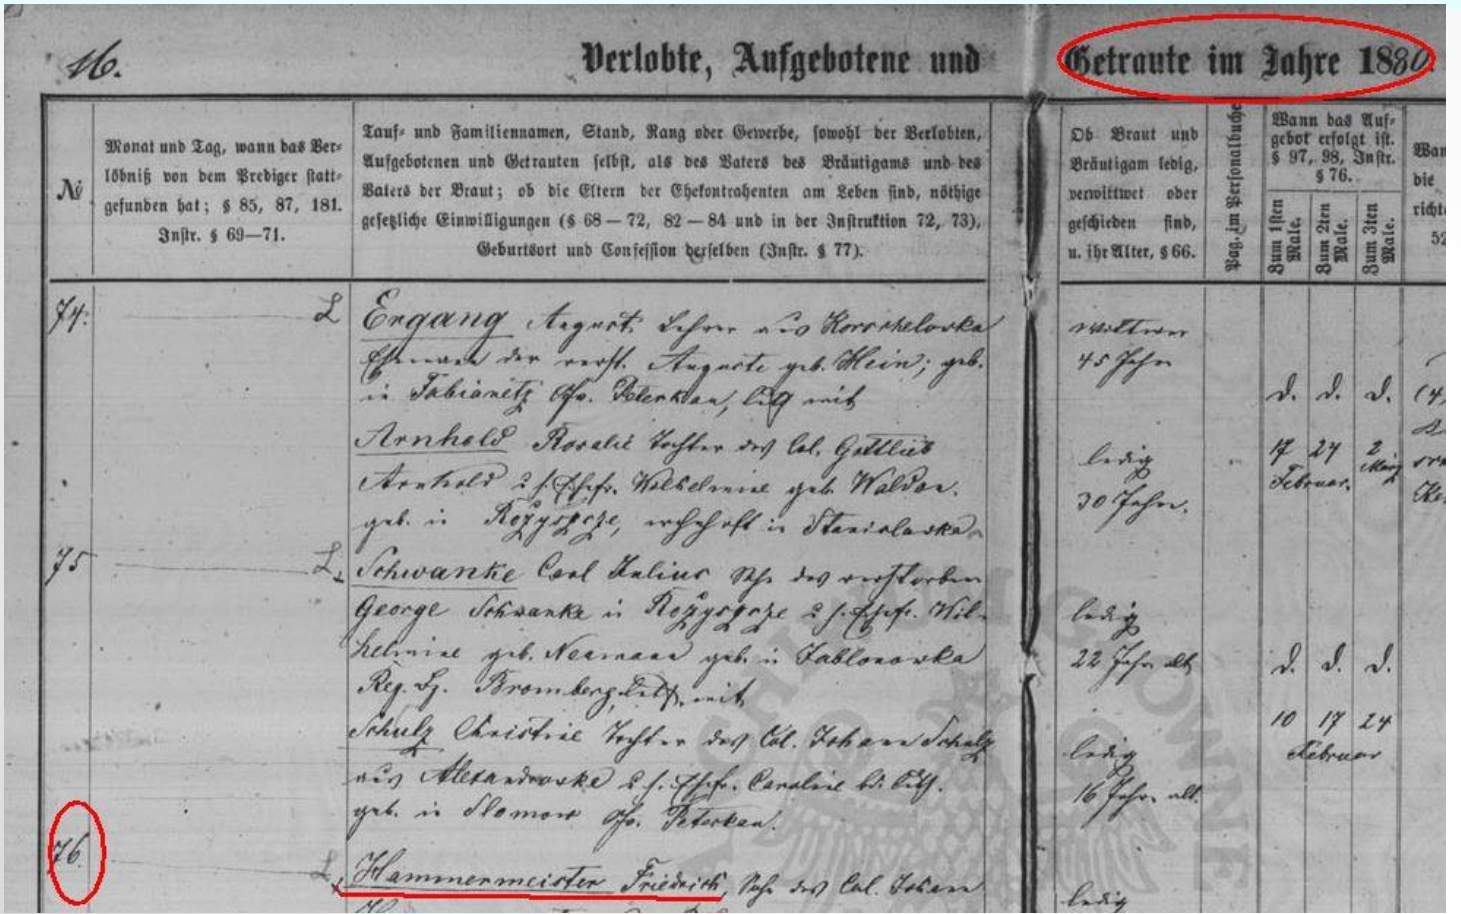 16.
Verlobte, Aufgebotene und Getraute im Jahre 1880.
№
Monat und Tag, wann das Ver-
löbniß von dem Prediger statt-
gefunden hat; § 85, 87, 181.
Instr. § 69—71.
Tauf- und Familiennamen, Stand, Rang oder Gewerbe, sowohl der Verlobten,
Aufgebotenen und Getrauten selbst, als des Vaters des Bräutigams und des
Vaters der Braut; ob die Eltern der Ehekontrahenten am Leben sind, nöthige
gesetzliche Einwilligungen (§ 68 — 72, 82 — 84 und in der Instruktion 72, 73),
Geburtsort und Confession derselben (Instr. § 77).
Ob Braut und
Bräutigam ledig,
verwittwet oder
geschieden sind,
u. ihr Alter, § 66.
Pag. im Personalbuche
Wann das Auf-
gebot erfolgt ist.
§ 97, 98, Instr.
§ 76.
Zum 1sten
Male.
Zum 2ten
Male.
Zum 3ten
Male.
die
52
74.
L
Ergang August, Lehrer aus
der verst. Auguste geb. Hein; geb.
in Pabianitz Gv. mit
Arnhold Rosalie Tochter des Col. Gottlieb
Arnhold u. s. Ehefr. Wilhelmine geb.
geb. in Rożyszcze, wohnhaft in Stanislawka
Wittwer
45 Jahre
ledig
30 Jahre.
d. d. d.
17 24 2
Februar. März
75
L
Schwanke Carl Julius Sohn des verstorben
George Schwanke in Rożyszcze u. s. Ehefr. Wil-
helmine geb. Neumann geb. in Jablonowka
Reg. Bz. Bromberg, mit
Schulz Christine Tochter des Col. Johann Schulz
aus u. s. Ehefr. Caroline
geb. in Slomow Gv.
ledig
22 Jahr alt
ledig
16 Jahr alt.
d. d. d.
10 17 24
Februar
76.
L
Hammermeister Friedrich, Sohn des Col. Johann
ledig